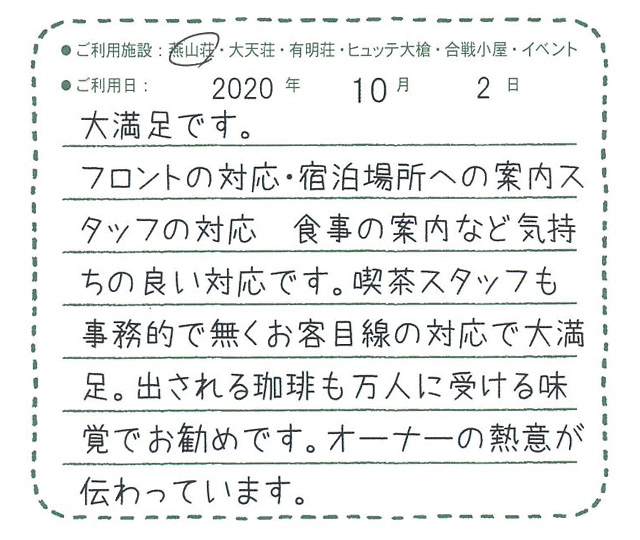 ●ご利用施設：燕山荘・大天荘・有明荘・ヒュッテ大槍・合戦小屋・イベント
●ご利用日： 2020 年 10 月 2 日
大満足です。
フロントの対応・宿泊場所への案内ス
タッフの対応　食事の案内など気持
ちの良い対応です。喫茶スタッフも
事務的で無くお客目線の対応で大満
足。出される珈琲も万人に受ける味
覚でお勧めです。オーナーの熱意が
伝わっています。